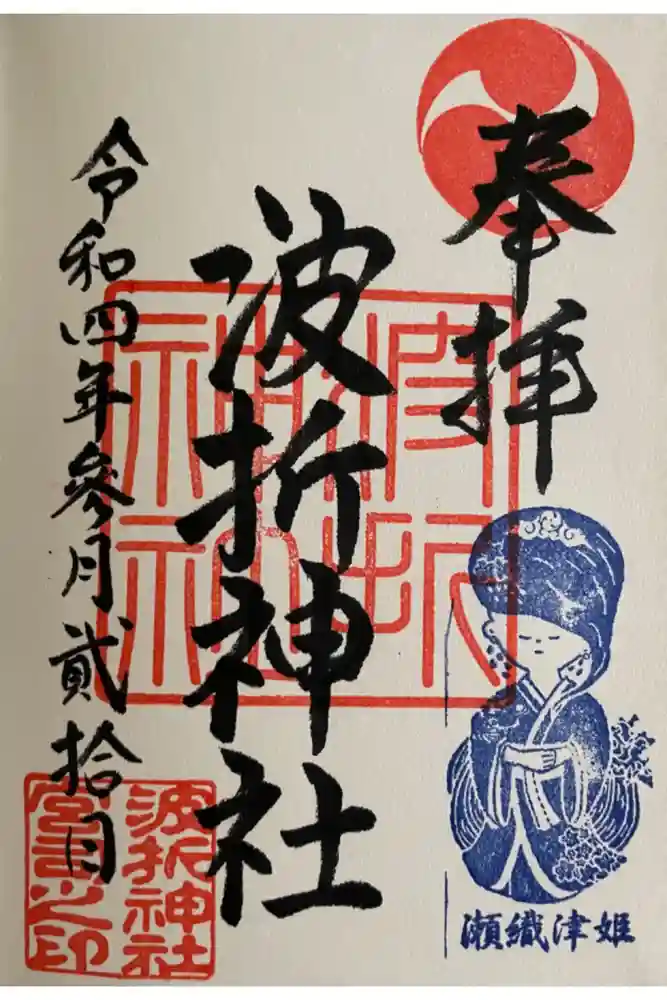 奉拝
瀬織津姫
波折神社
波折神社
令和四年參月貳拾日
波折神社
宮司之印